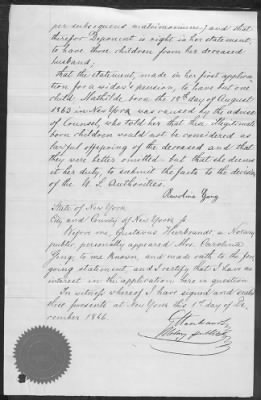 per subsequens matrimonium) and that
therefor Deponent is right in her statement,
to have three children from her deceased
husband,
That the statement, made in her first applica
tion for a widow's pension, to have but one
child Mathilde born the 18th day of August
1863 in New York was caused by the advice
of Counsel, who told her that three illegitimate
born children would not be considered as
lawful offspring of the deceased and that
they were better omitted but that she deems
it her duty, to submit the facts to the decision
of the U. S. Authorities.
State of New York
City and County of New York ss
Before me, Gustavus a Notary
public personally appeared Mrs. Carolina
to me known, and made oath to the fore
going statement, and I certify that I have no
interest in the application here in question.
In witness whereof I have signed and sealed
these presents at New York this 1st day of De
cember 1866.
Notary public